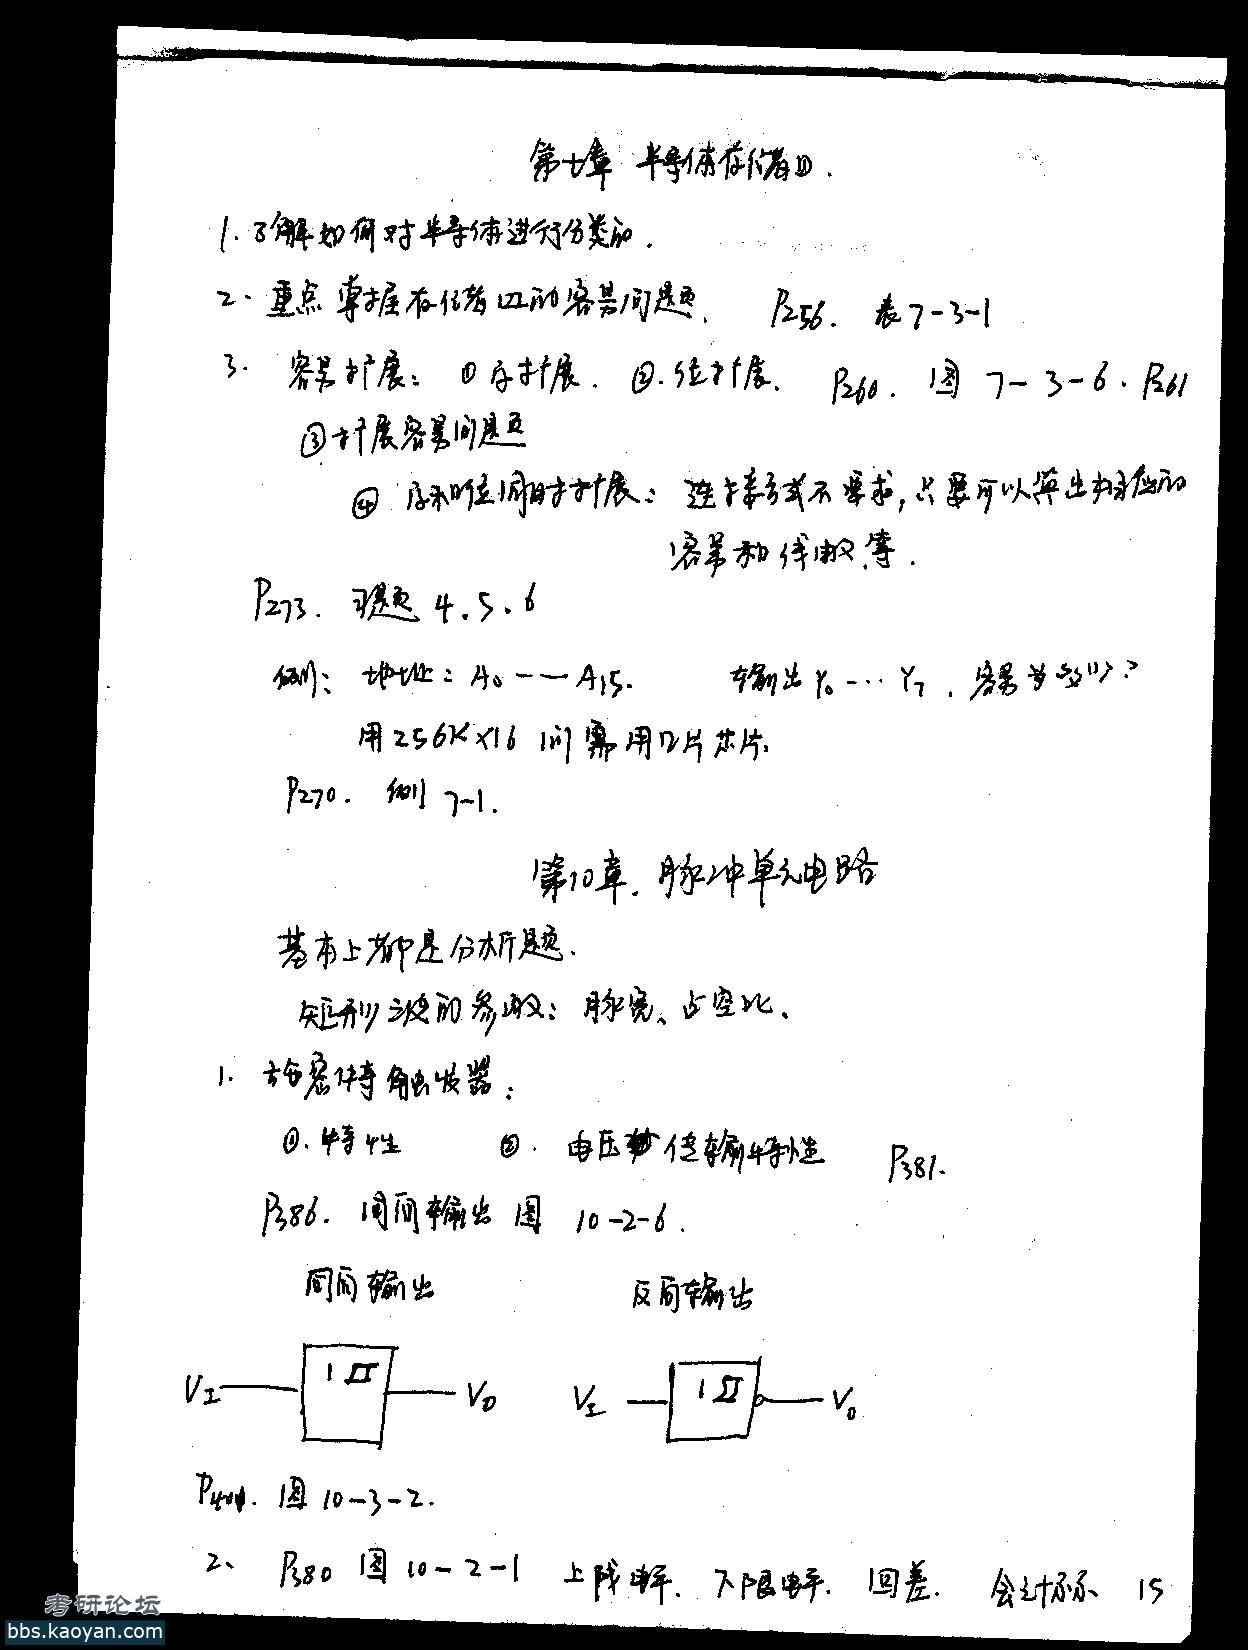 第七章 半导体存储器.
1. 了解如何对半导体进行分类的.
2. 重点掌握存储器的容量问题. P256. 表7-3-1
3. 容量扩展: ①字扩展. ②.位扩展. P260. 图 7-3-6. P261
③扩展容量问题
④ 字和位同时扩展: 连接方式不要求,只要可以算出对应的
容量和线数等.
P273. 习题 4.5.6
例: 地址: A0——A15. 输出Y0…Y7. 容量为多少?
用256K×16 问需用几片芯片.
P270. 例 7-1.
第10章. 脉冲单元电路
基本上都是分析题.
矩形波的参数: 脉宽、占空比.
1. 施密特触发器:
①. 特性 ②. 电压传输特性 P381.
P386. 同向输出 图 10-2-6.
同向输出 反向输出
VI 1 VO VI 1 VO
图10-3-2.
2、 P380 图10-2-1 上限电平. 下限电平. 回差. 会计算 15
考研论坛
bbs.kaoyan.com